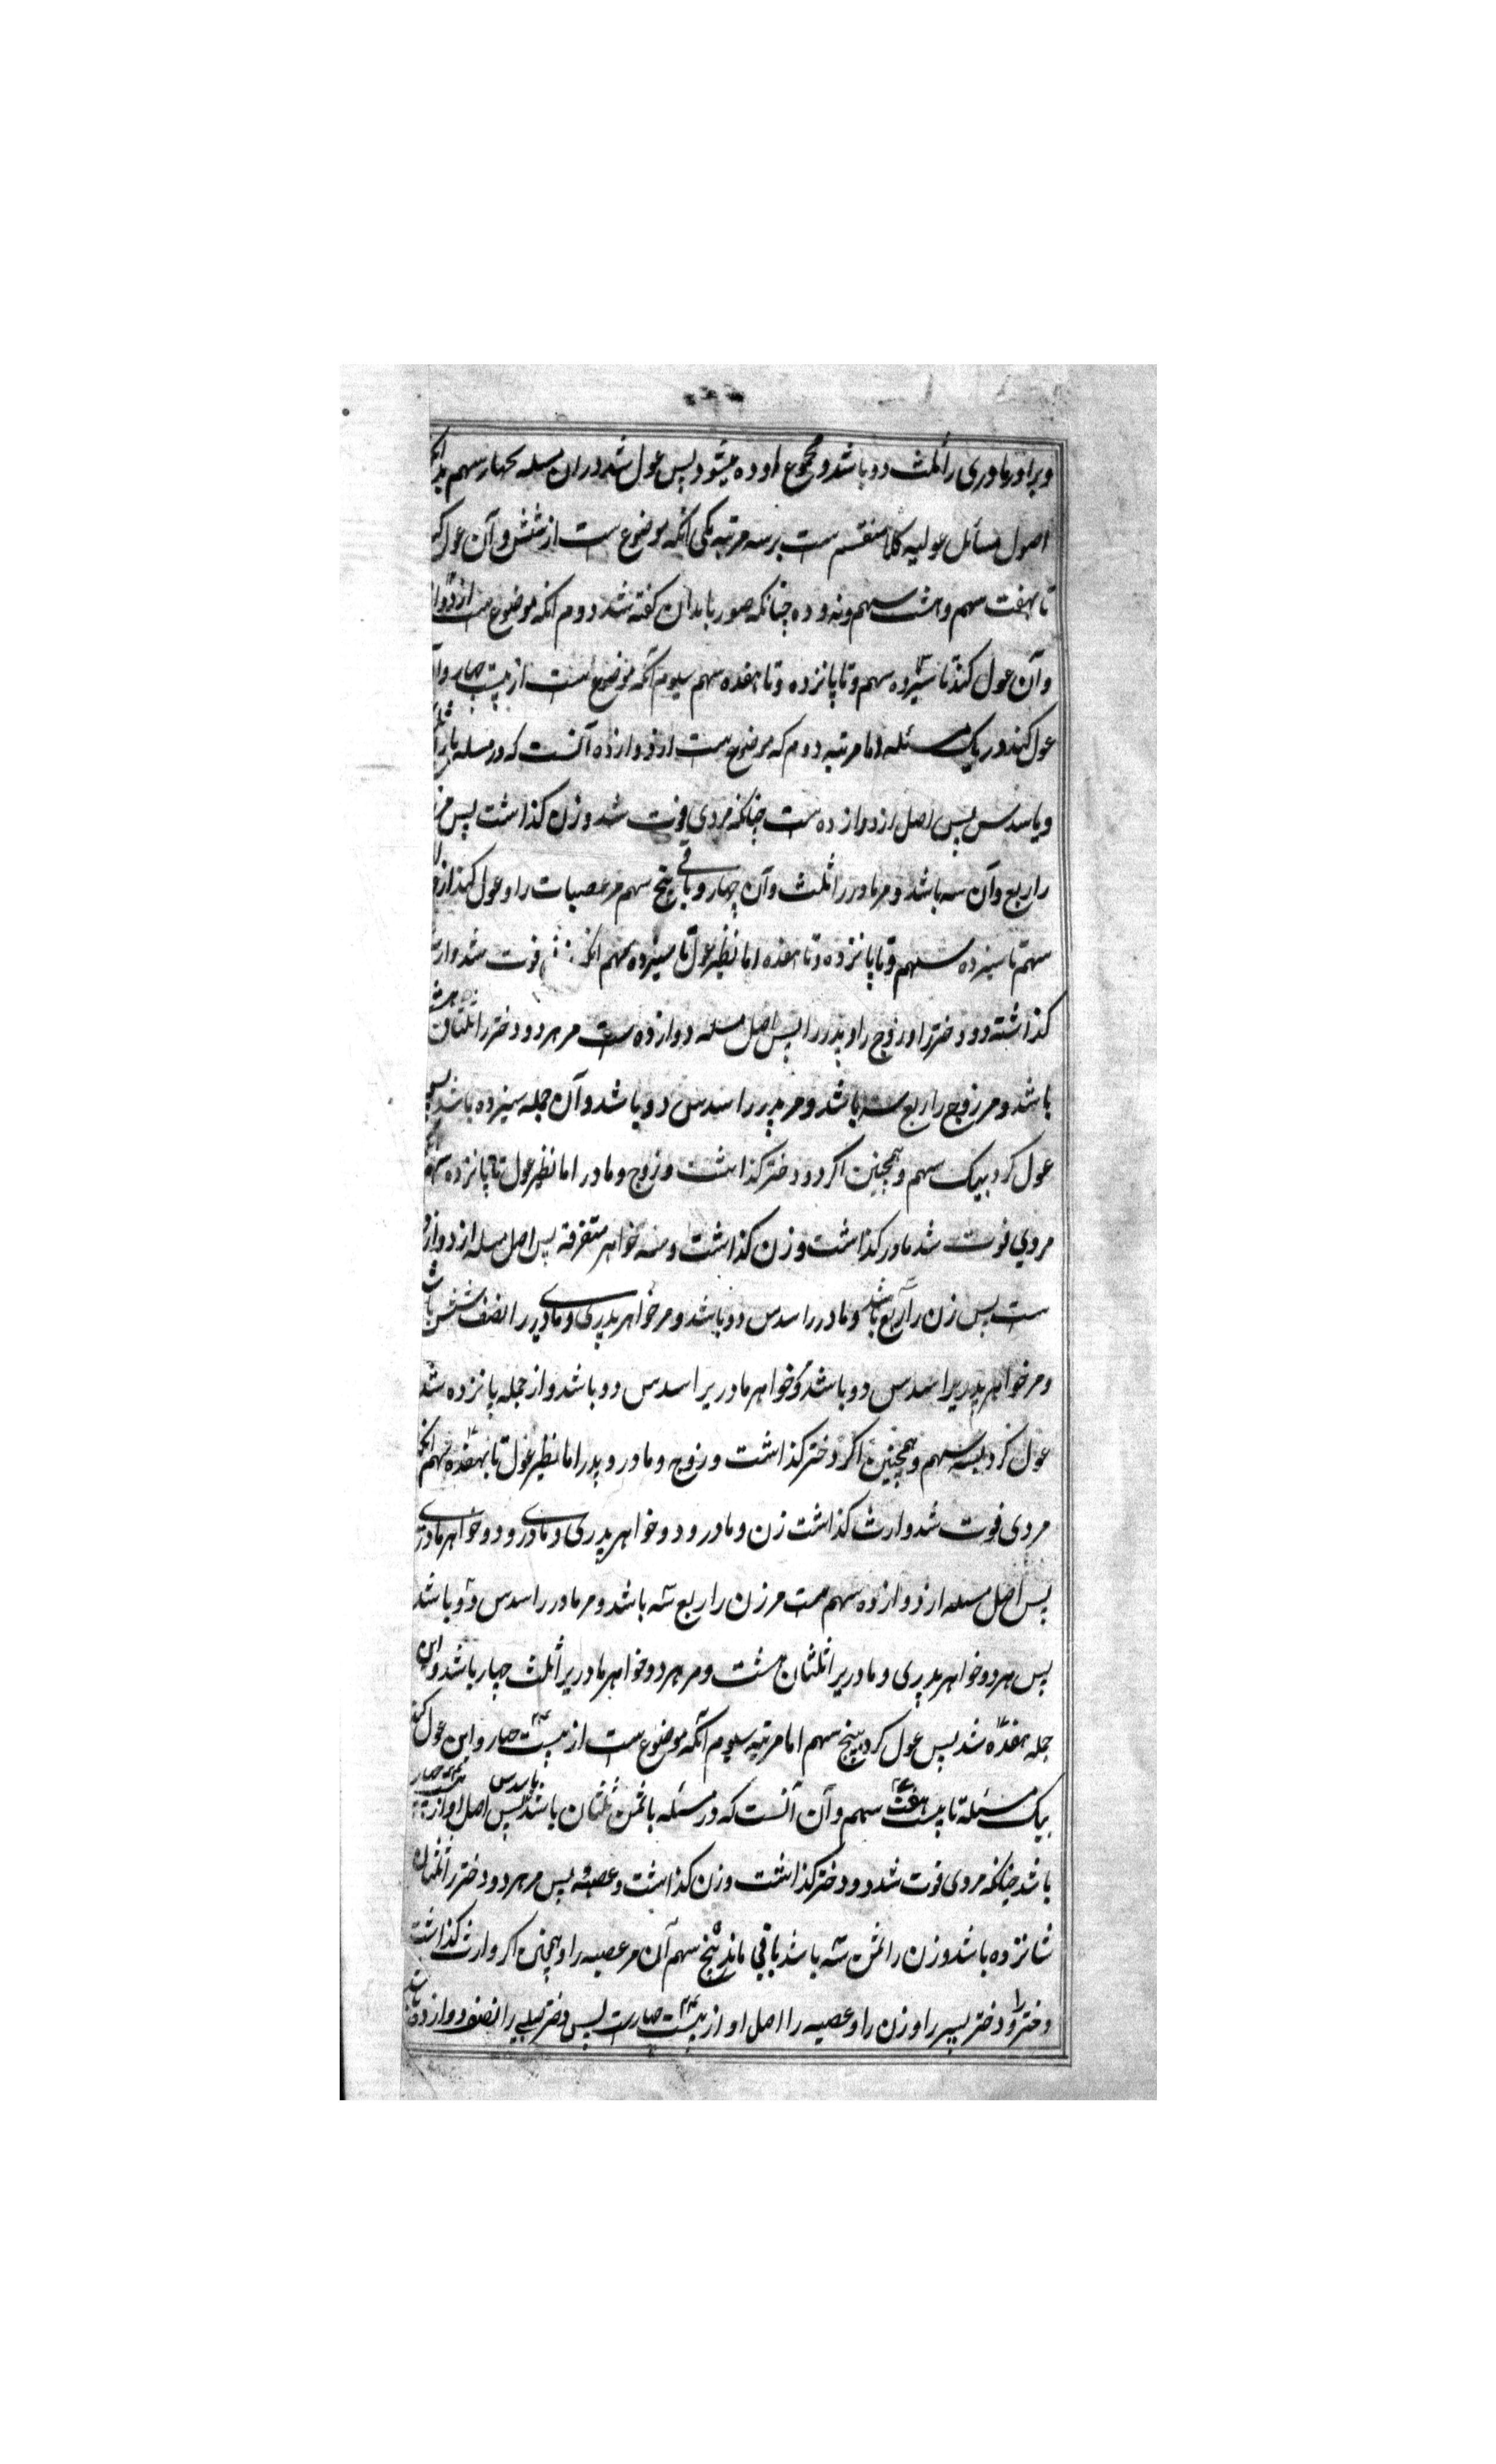 وبرادر مادری را ثلث دو باشد و مجموع او ده میشود پس عول شد دران مسله بچهار سهم بدانکه
اصول مسائل عولیه کلا منقسم ست بر سه مرتبه یکی آنکه موضوع ست از شش و آن عول کند
تا بهفت سهم و هشت سهم و نه و ده چنانکه صورتها بدان کفته شد دوم آنکه موضوع ست از دواز
وآن عول کند تا سیزده سهم و تا پانزده و تا هفده سهم سیوم آنکه موضوع است از بیست چهار وآ
عول کند در یک مسئله اما مرتبه دوم که موضوع ست از دوازده آنست که در مسله
ویا سدس پس اصل از دوازده ست چنانکه مردی فوت شد و زن کذاشت پس مر
را ربع وآن سه باشد و مر مادر را ثلث وآن چهار و باقی پنج سهم مر عصبات را و عول کند از
سهم تا سیزده سهم و تا پانزده و تا هفده اما نظیر عول تا سیزده سهم آنکه فوت شد وارث
کذاشته دو دختر را و زوج را و پدر را پس اصل مسله دوازده ست مر هر دو دختر را ثلثان هشت
باشد و مر زوج را ربع سه باشد و مر پدر را سدس دو باشد و آن جمله سیزده باشد پس
عول کرد بیک سهم و همچنین اکر دو دختر کذاشت و زوج و مادر اما نظیر عول تا پانزده سهم
مردی فوت شد مادر کذاشت و زن کذاشت و سه خواهر متفرقه پس اصل مسله از دوازده
ست پس زن را ربع باشد و مادر را سدس دو باشد و مر خواهر پدری و مادری را نصف شش باشد
و مر خواهر پدریرا سدس دو باشد و خواهر مادریرا سدس دو باشد و از جمله پانزده شد
عول کرد بسه سهم و همچنین اکر دختر کذاشت و زوج و مادر و پدر اما نظیر عول تا بهفده سهم آنکه
مردی فوت شد وارث کذاشت زن و مادر و دو خواهر پدری و مادری و دو خواهر مادری
پس اصل مسله از دوازده سهم ست مر زن را ربع سه باشد و مر مادر را سدس دو باشد
پس هر دو خواهر پدری و مادریرا ثلثان هشت و مر هر دو خواهر مادریرا ثلث چهار باشد و این
جمله هفده شد پس عول کرد بپنج سهم اما مرتبه سیوم آنکه موضوع ست از بیست چهار و این عول کند
بیک مسئله تا بیست هفت سهم وآن آنست که در مسئله با ثمن ثلثان باشد یا سدس پس اصل او از بیست چهار
باشد چنانکه مردی فوت شد دو دختر کذاشت و زن کذاشت و عصبه پس مر هر دو دختر را ثلثان
شانزده باشد و زن را ثمن سه باشد باقی ماند پنج سهم آن مر عصبه را و همچنین اکر وارث کذاشت
دختر و دختر پسر را و زن را و عصبه را اصل او از بیست چهارست پس دختر صلبی را نصف دوازده باشد